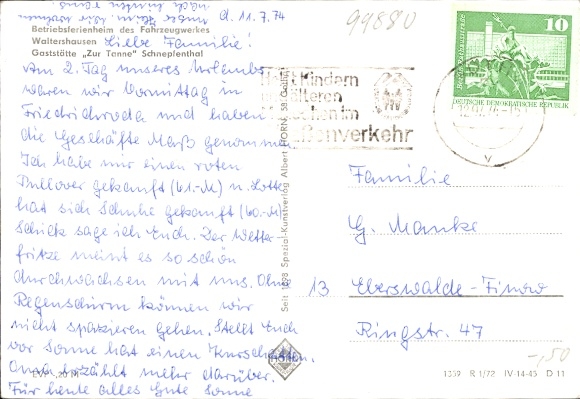 d. 11.7.74
99880
Betriebsferienheim des Fahrzeugwerkes
Waltershausen
Gaststätte „Zur Tanne" Schnepfenthal
Liebe Familie!
Am 2. Tag unseres Urlaubs
waren wir Vormittag in
Friedrichroda und haben
die Geschäfte Maß genommen.
Ich habe mir einen roten
Pullover gekauft (61.-M) u. Lotte
hat sich Schuhe gekauft (60.-M)
Schick sage ich Euch. Der Wetter-
fritze meint es so schön
durchwachsen mit uns. Ohne
Regenschirm können wir
nicht spazieren gehen. Stellt Euch
vor Sonne hat einen Kurschatten.
Oma erzählt mehr darüber.
Für heute alles Gute Sonne
EVP
Kindern
älteren
im
enverkehr
10
DEUTSCHE DEMOKRATISCHE REPUBLIK
Seit 1898 Spezial-Kunstverlag Albert HORN, 
Familie
G. Manke
13 Eberswalde-Finow
Ringstr. 47
-,50
1359 R 1/72 IV-14-45 D 11